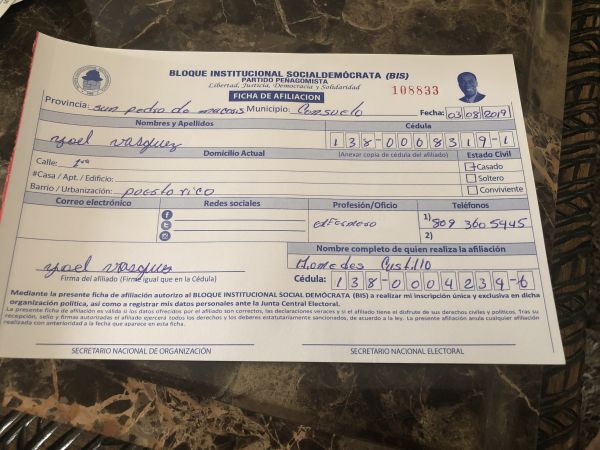 BLOQUE INSTITUCIONAL SOCIALDEMÓCRATA (BIS)
PARTIDO PEÑAGOMISTA
Libertad, Justicia, Democracia y Solidaridad
FICHA DE AFILIACION
108833
Provincia: san pedro de macoris Municipio: Consuelo Fecha: 03/08/2019
Nombres y Apellidos Cédula
yoel vasquez 138-0006319-1
Domicilio Actual (Anexar copia de cédula del afiliado) Estado Civil
Calle: 1ra Casado
#Casa / Apt. / Edificio: Soltero
Barrio / Urbanización: puerto rico Conviviente
Correo electrónico Redes sociales Profesión/Oficio Teléfonos
1) 809 360 5445
2)
Nombre completo de quien realiza la afiliación
yoel vasquez Castillo
Firma del afiliado (Firme igual que en la Cédula) Cédula: 138-0004239-6
Mediante la presente ficha de afiliación autorizo al BLOQUE INSTITUCIONAL SOCIAL DEMÓCRATA (BIS) a realizar mi inscripción única y exclusiva en dicha
organización política, así como a registrar mis datos personales ante la Junta Central Electoral.
La presente ficha de afiliación es válida si los datos ofrecidos por el afiliado son correctos, las declaraciones veraces y si el afiliado tiene el disfrute de sus derechos civiles y políticos. Tras su
recepción, sello y firmas autorizadas el afiliado ejercerá todos los derechos y los deberes estatutariamente sancionados, de acuerdo a la ley. La presente afiliación anula cualquier afiliación
realizada con anterioridad a la fecha que aparece en esta ficha.
SECRETARIO NACIONAL DE ORGANIZACIÓN SECRETARIO NACIONAL ELECTORAL